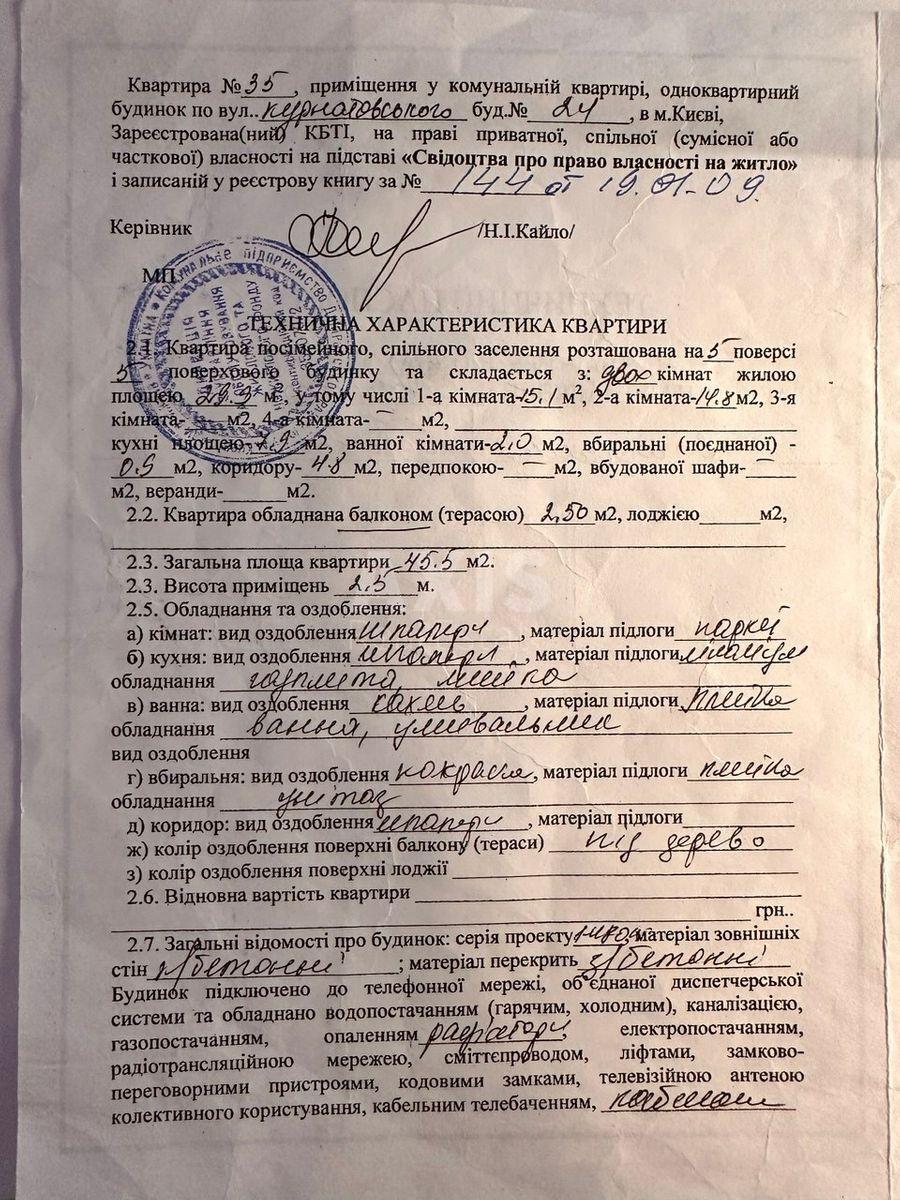 Квартира №35, приміщення у комунальній квартирі, одноквартирний
будинок по вул..Курнатовського буд.№ 24, в м.Києві,
Зареєстрована(ний) КБТІ, на праві приватної, спільної (сумісної або
часткової) власності на підставі «Свідоцтва про право власності на житло»
і записаній у реєстрову книгу за № 144 от 19.01-09.
Керівник /Н.І.Кайло/
МП
ТЕХНІЧНА ХАРАКТЕРИСТИКА КВАРТИРИ
2.1. Квартира посімейного, спільного заселення розташована на 5 поверсі
5 поверхового будинку та складається з: двох кімнат жилою
площею 29.9 м², у тому числі 1-а кімната-15.1 м², 2-а кімната-14.8м2, 3-я
кімната- — м2, 4-а кімната- — м2,
кухні площею-7.9 м2, ванної кімнати-2.0 м2, вбиральні (поєднаної) -
0.9 м2, коридору- 4.8 м2, передпокою- — м2, вбудованої шафи- —
м2, веранди-______м2.
2.2. Квартира обладнана балконом (терасою) 2,50 м2, лоджією______м2,
2.3. Загальна площа квартири 45.5 м2.
2.3. Висота приміщень 2.5 м.
2.5. Обладнання та оздоблення:
а) кімнат: вид оздоблення шпалери, матеріал підлоги паркет
б) кухня: вид оздоблення шпалери, матеріал підлоги лінолеум
обладнання газплита, мийка
в) ванна: вид оздоблення кахель, матеріал підлоги плитка
обладнання ванна, умивальник
вид оздоблення
г) вбиральня: вид оздоблення покраска, матеріал підлоги плитка
обладнання унітаз
д) коридор: вид оздоблення шпалери, матеріал підлоги
ж) колір оздоблення поверхні балкону (тераси) під дерево
з) колір оздоблення поверхні лоджії
2.6. Відновна вартість квартири
грн..
2.7. Загальні відомості про будинок: серія проекту матеріал зовнішніх
стін з/бетонні ; матеріал перекрить з/бетонні
Будинок підключено до телефонної мережі, об'єднаної диспетчерської
системи та обладнано водопостачанням (гарячим, холодним), каналізацією,
газопостачанням, опаленням радіатори, електропостачанням,
радіотрансляційною мережею, сміттєпроводом, ліфтами, замково-
переговорними пристроями, кодовими замками, телевізійною антеною
колективного користування, кабельним телебаченням,